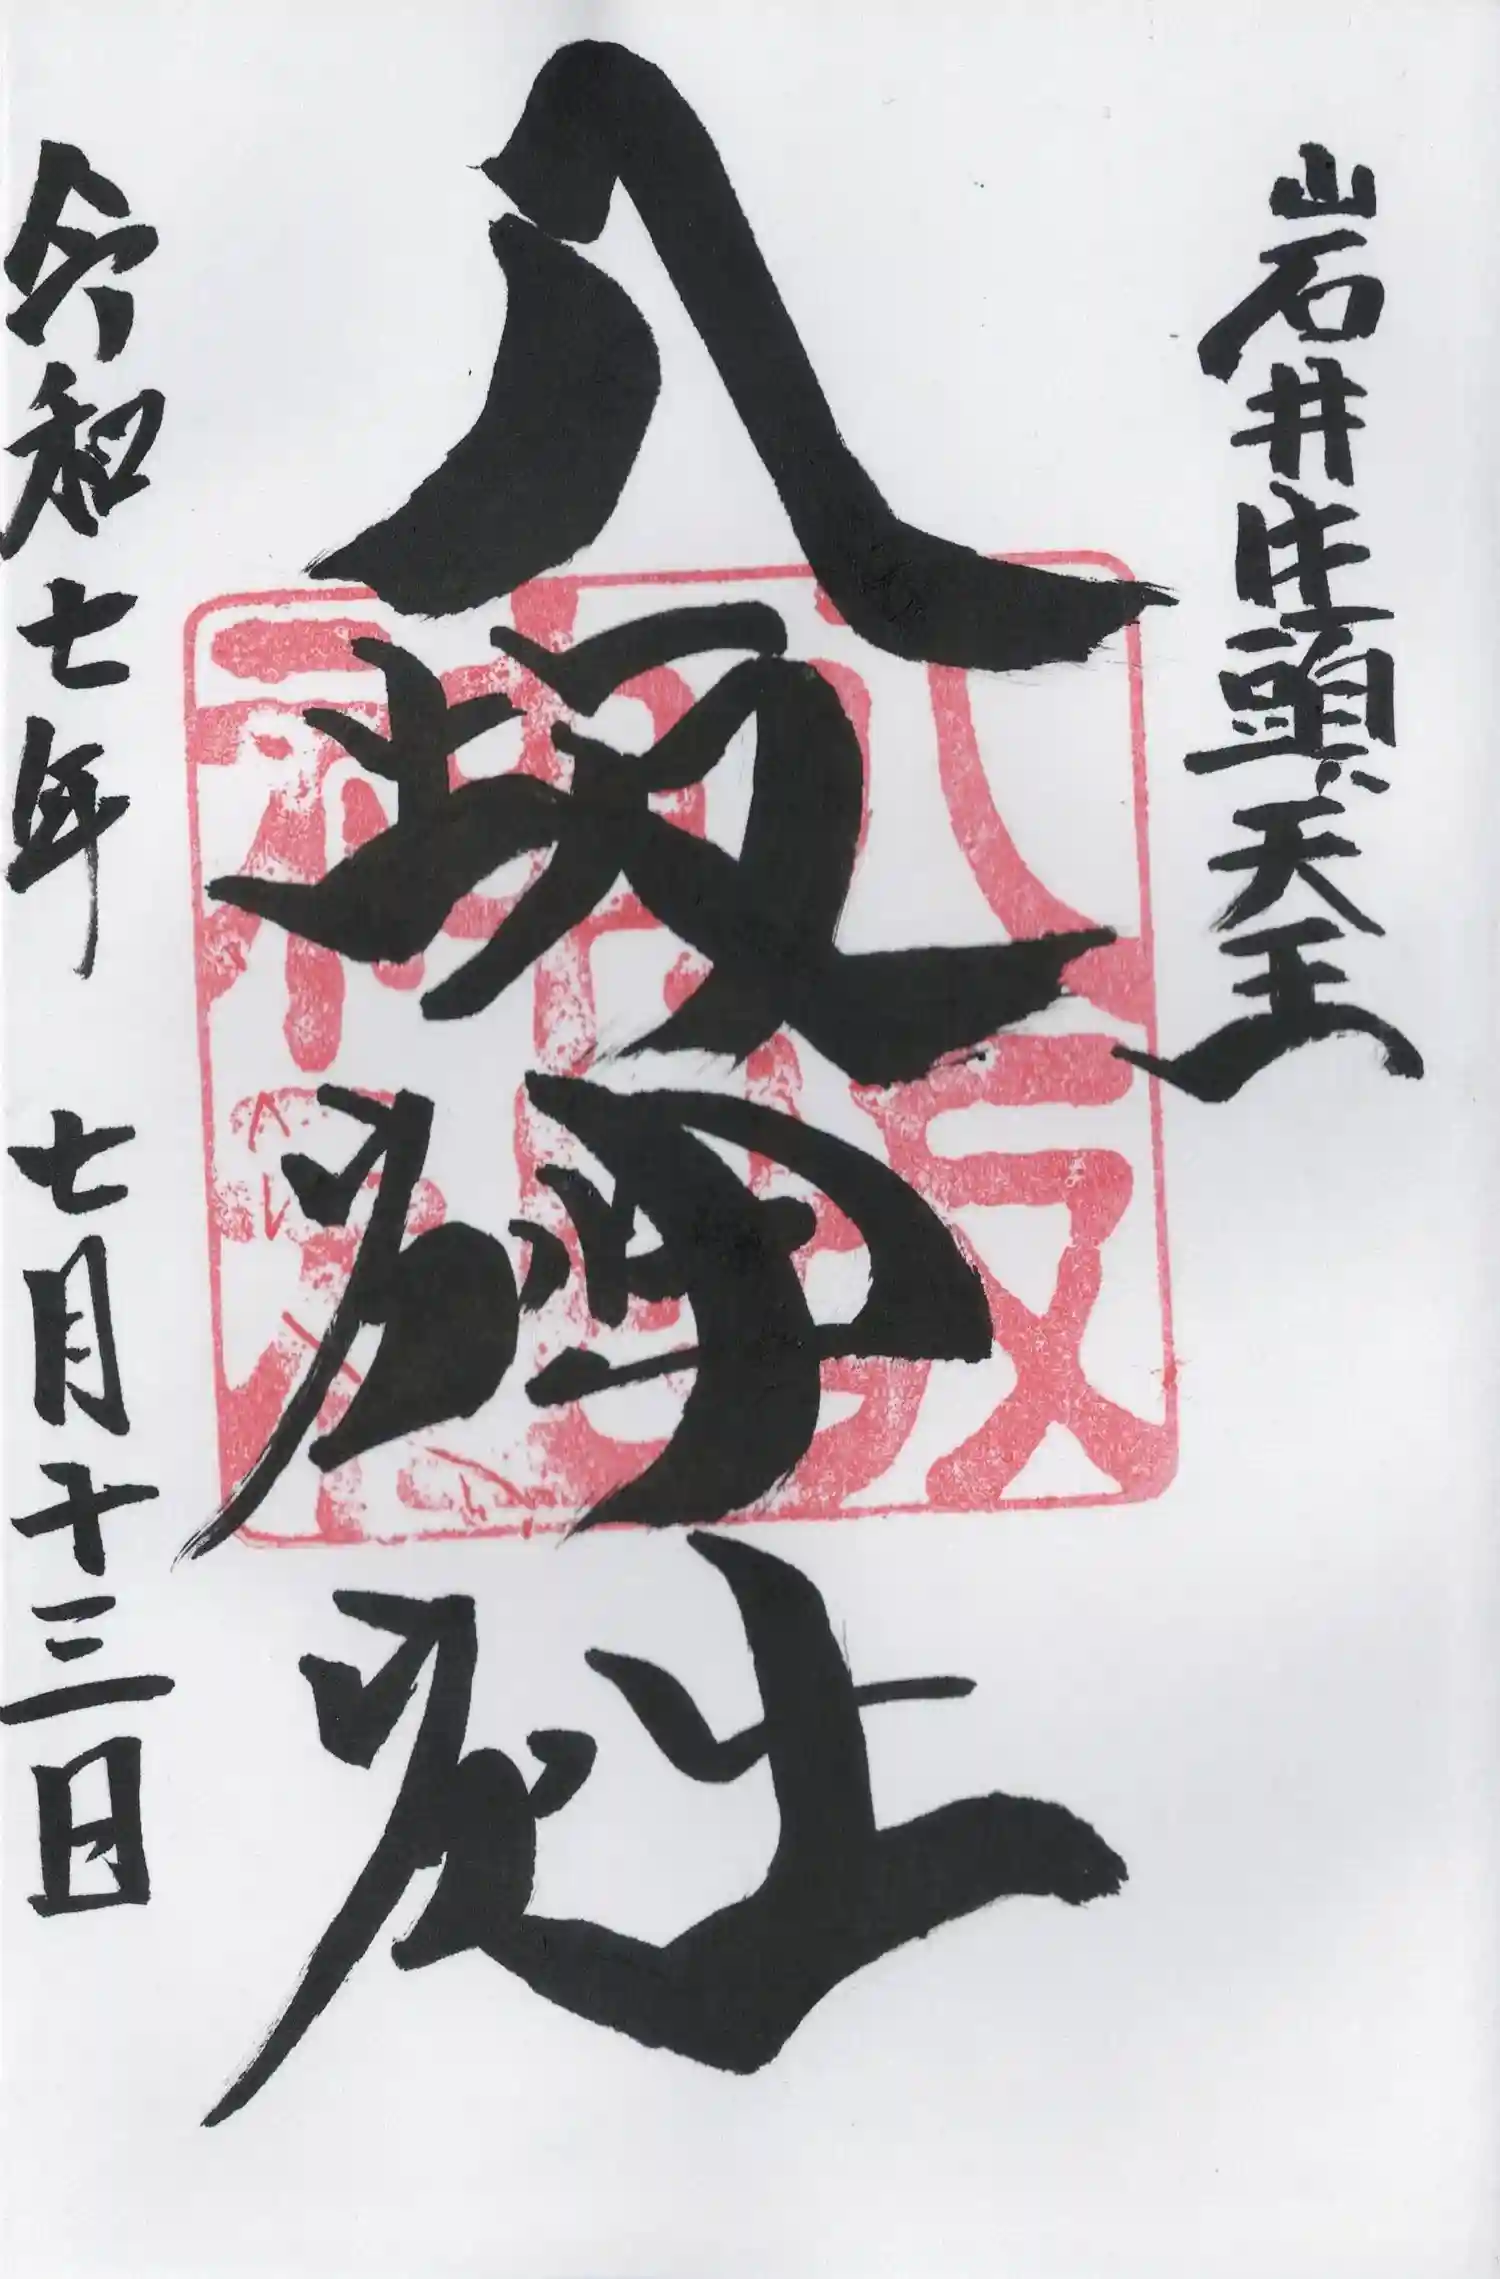 岩井牛頭天王
八坂神社
令和七年 七月十三日